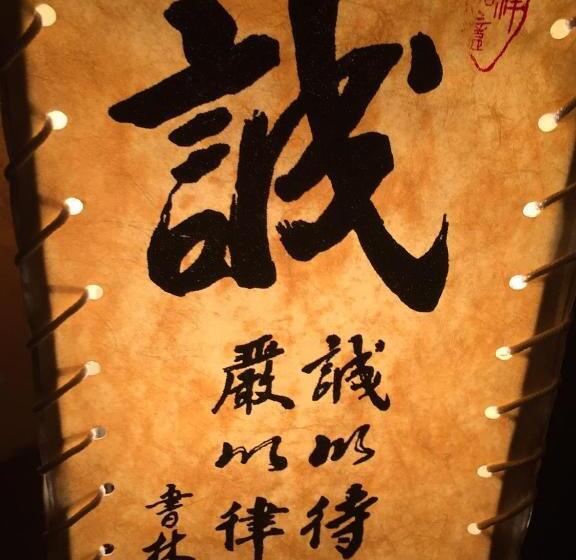 誠
誠以待
嚴以律
書林